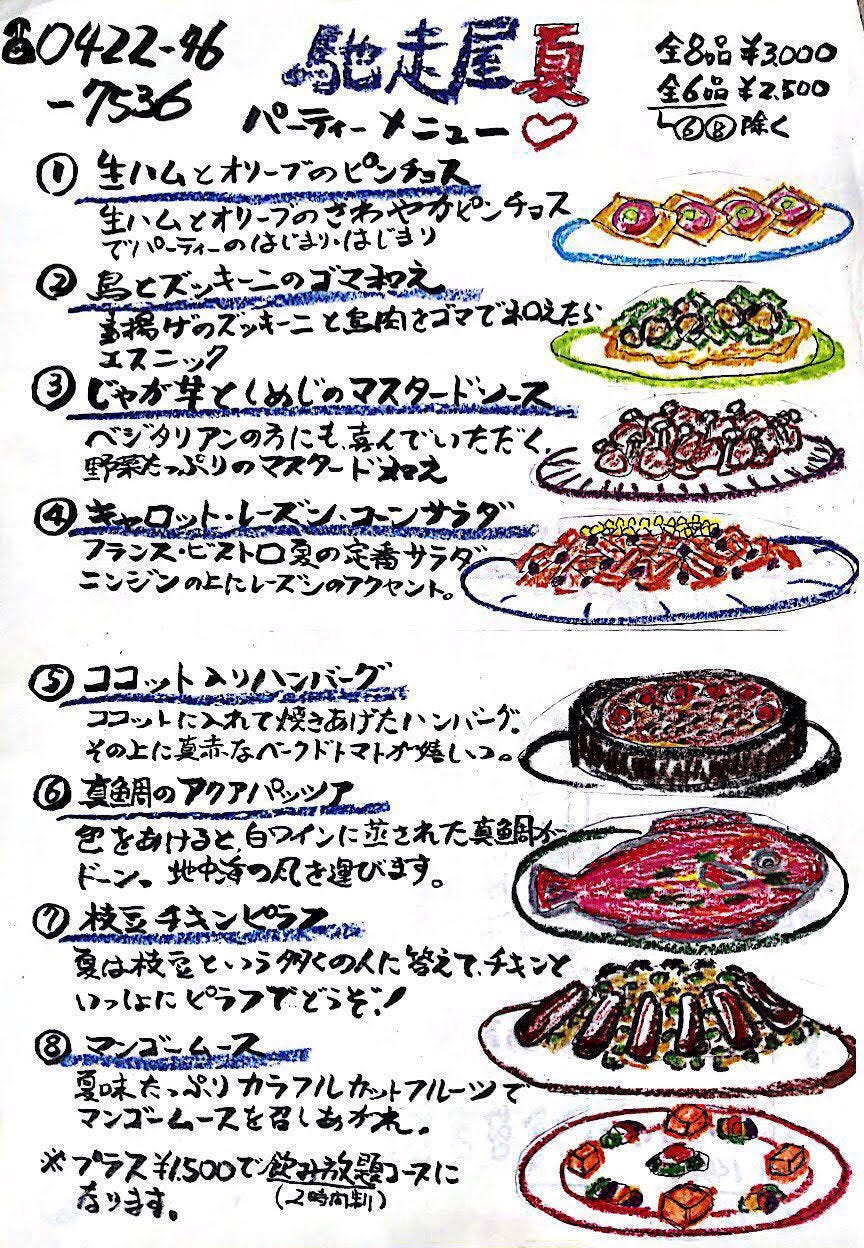 ☎0422-46
-7536
馳走屋夏
パーティーメニュー♡
全8品 ¥3,000
全6品 ¥2,500
↳⑥⑧除く
① 生ハムとオリーブのピンチョス
生ハムとオリーブのさわやかピンチョス
でパーティーのはじまり・はじまり
② 鳥とズッキーニのゴマ和え
揚げのズッキーニと鳥肉をゴマで和えたら
エスニック
③ じゃが芋としめじのマスタードソース
ベジタリアンの方にも喜んでいただく、
野菜たっぷりのマスタード和え
④ キャロット・レーズン・コーンサラダ
フランス・ビストロ夏の定番サラダ
ニンジンの上にレーズンのアクセント。
⑤ ココット入りハンバーグ
ココットに入れて焼きあげたハンバーグ。
その上に真赤なベークドトマトが嬉しい。
⑥ 真鯛のアクアパッツァ
包をあけると、白ワインに蒸された真鯛が
ドーン。地中海の風を運びます。
⑦ 枝豆チキンピラフ
夏は枝豆という多くの人に答えて、チキンと
いっしょにピラフでどうぞ!
⑧ マンゴームース
夏味たっぷりカラフルカットフルーツで
マンゴームースを召しあがれ。
※プラス¥1,500で飲み放題コースに
なります。(2時間制)